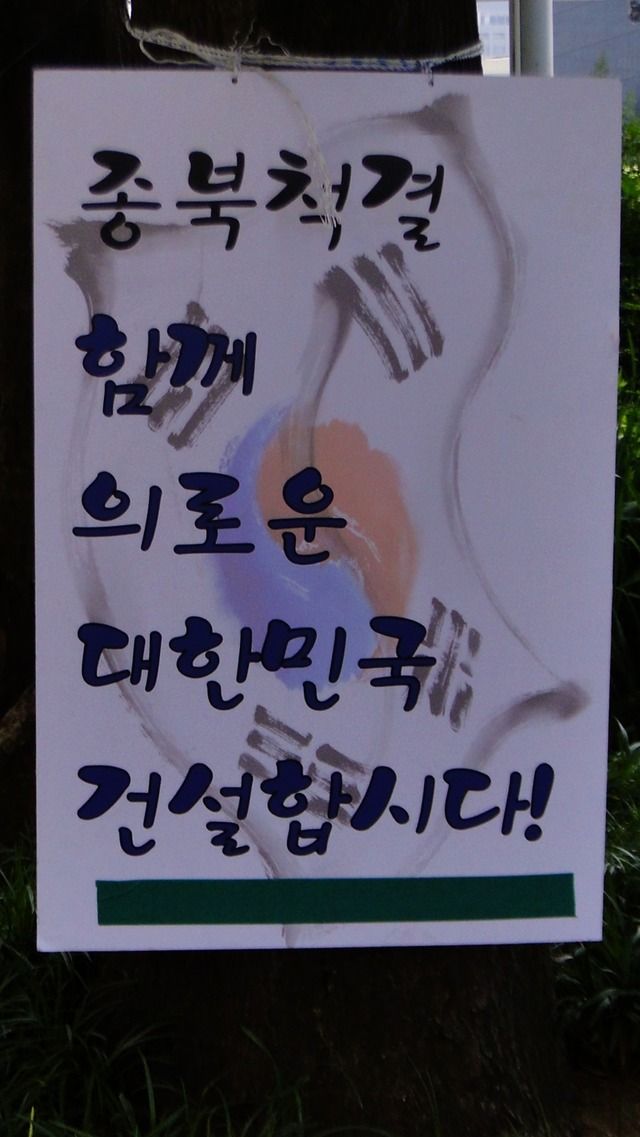 종북척결
함께
의로운
대한민국
건설합시다!